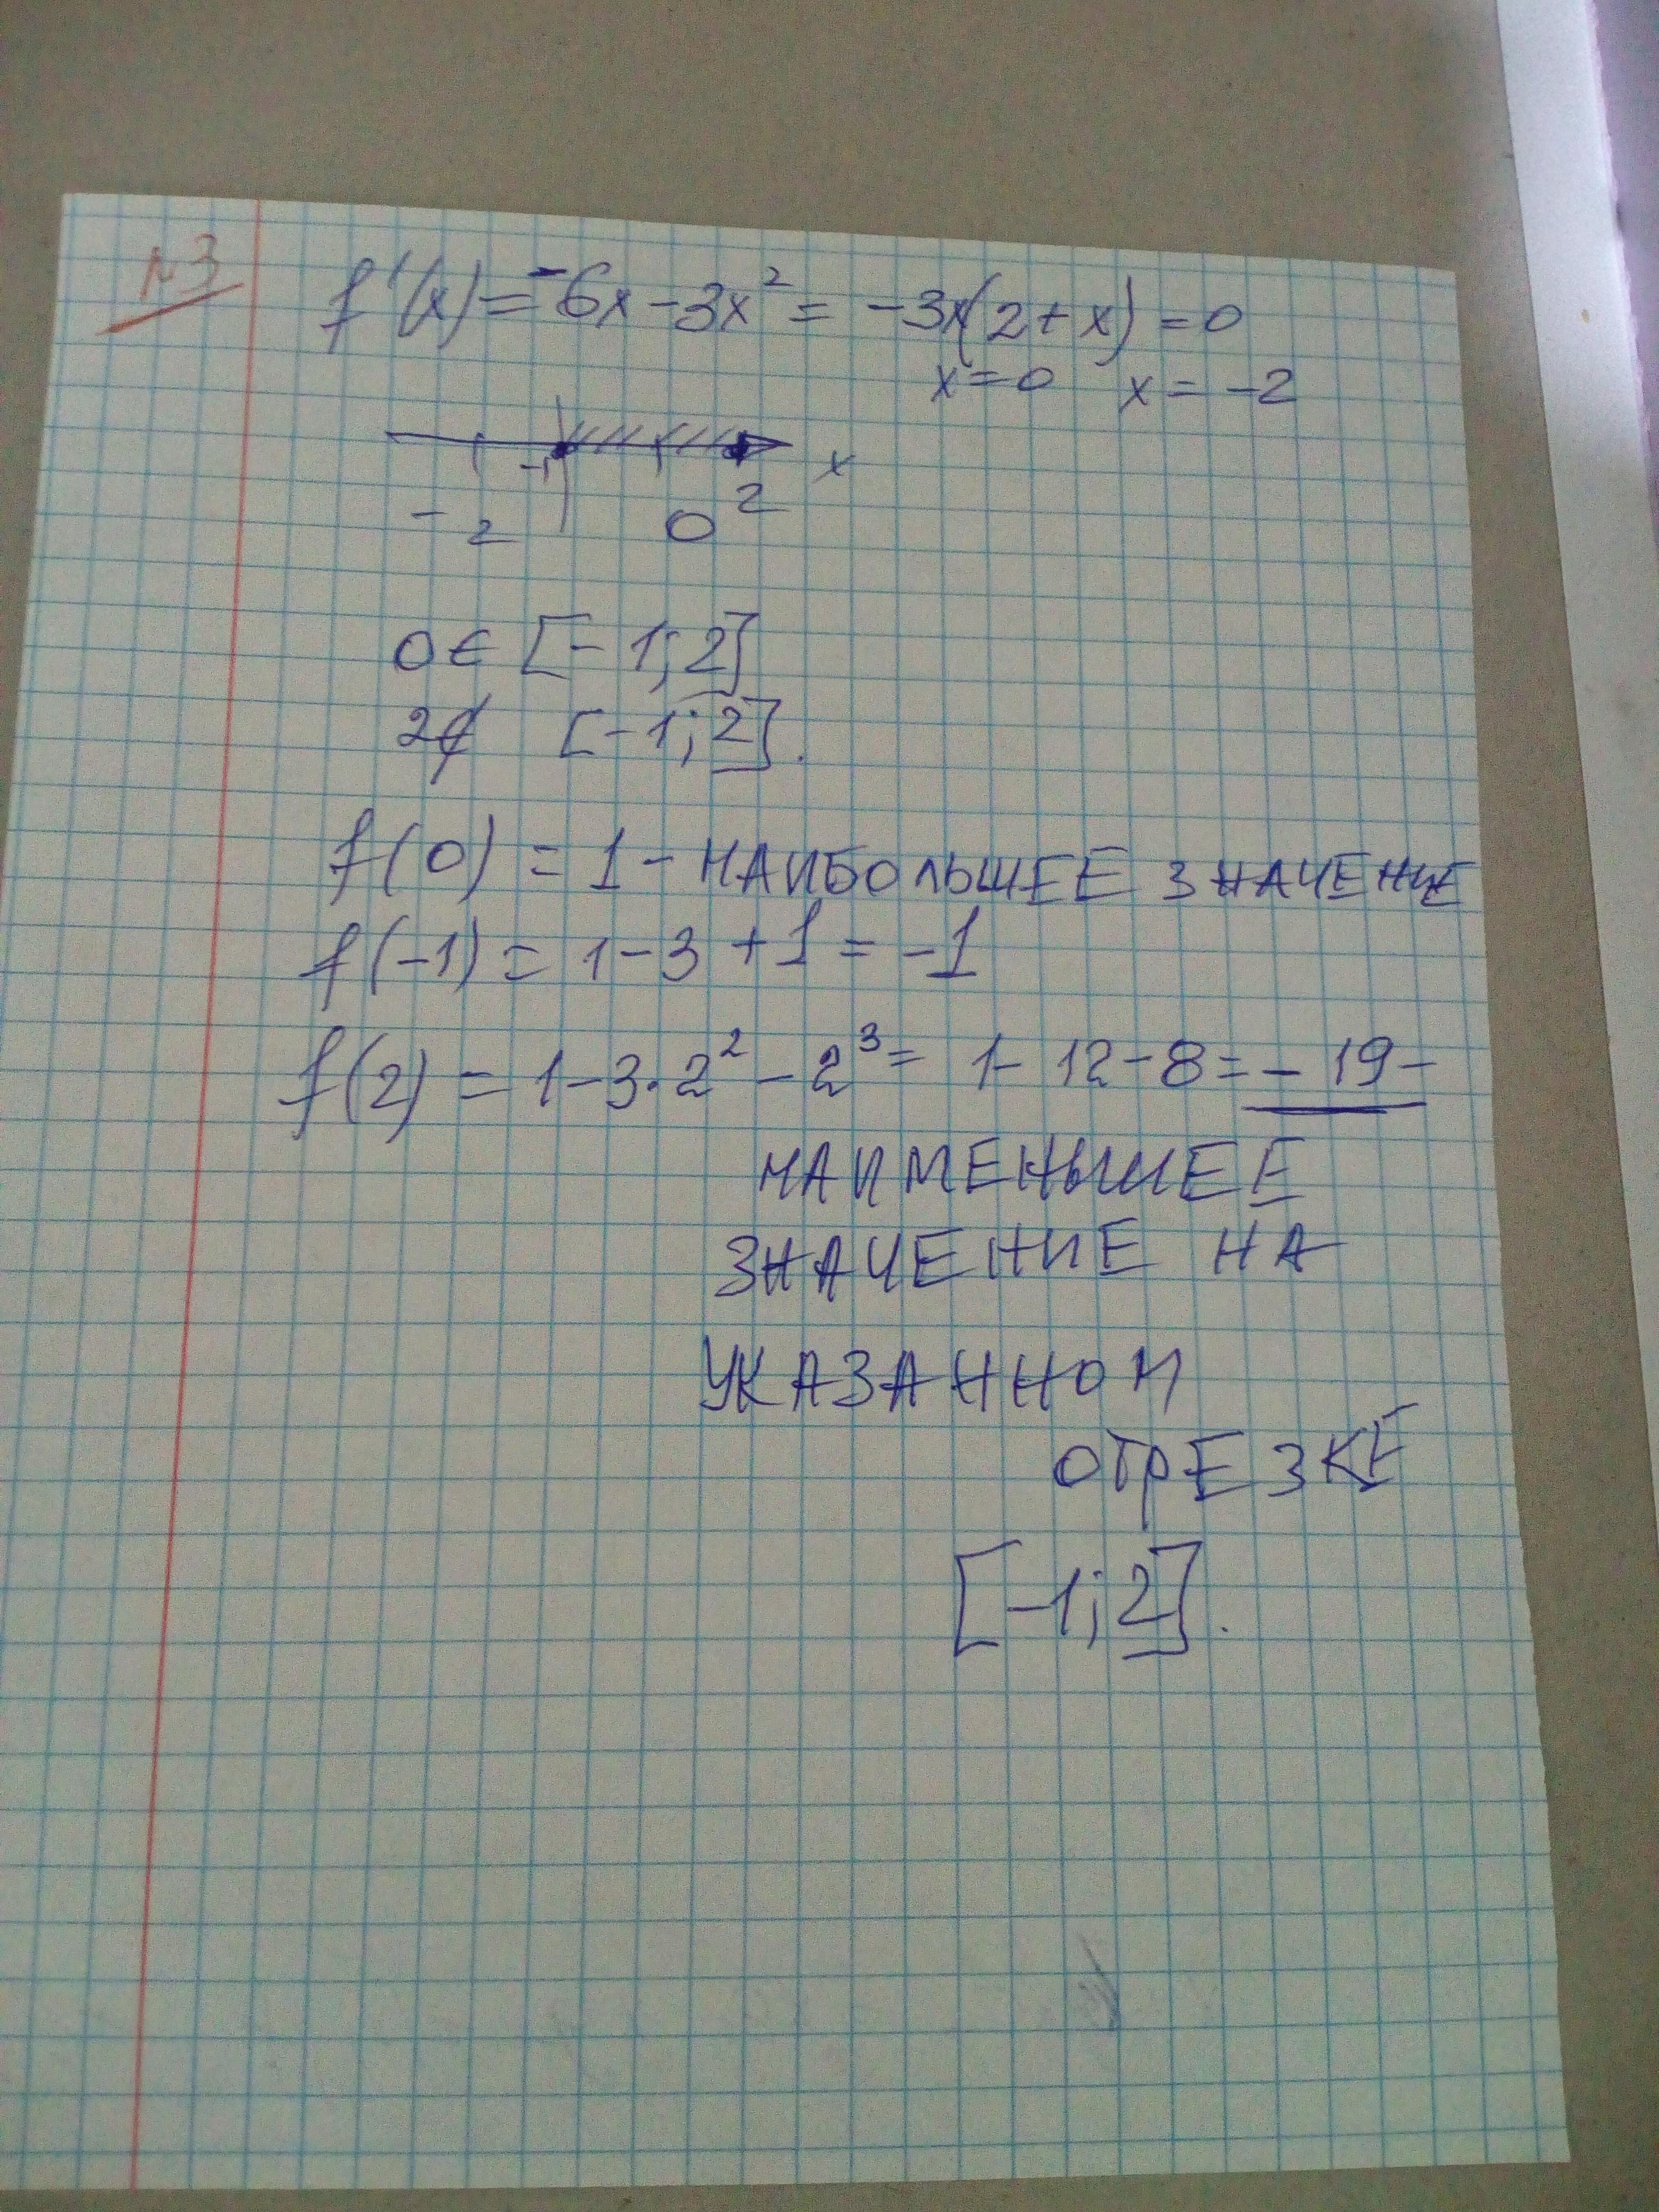 №3 f'(x) = -6x - 3x² = -3x(2 + x) = 0
x = 0 x = -2
-1 x
-2 0 2
0 ∈ [-1; 2]
2 ∉ [-1; 2].
f(0) = 1 - НАИБОЛЬШЕЕ ЗНАЧЕНИЕ
f(-1) = 1 - 3 + 1 = -1
f(2) = 1 - 3·2² - 2³ = 1 - 12 - 8 = -19 -
НАИМЕНЬШЕЕ
ЗНАЧЕНИЕ НА
УКАЗАННОМ
ОТРЕЗКЕ
[-1; 2].